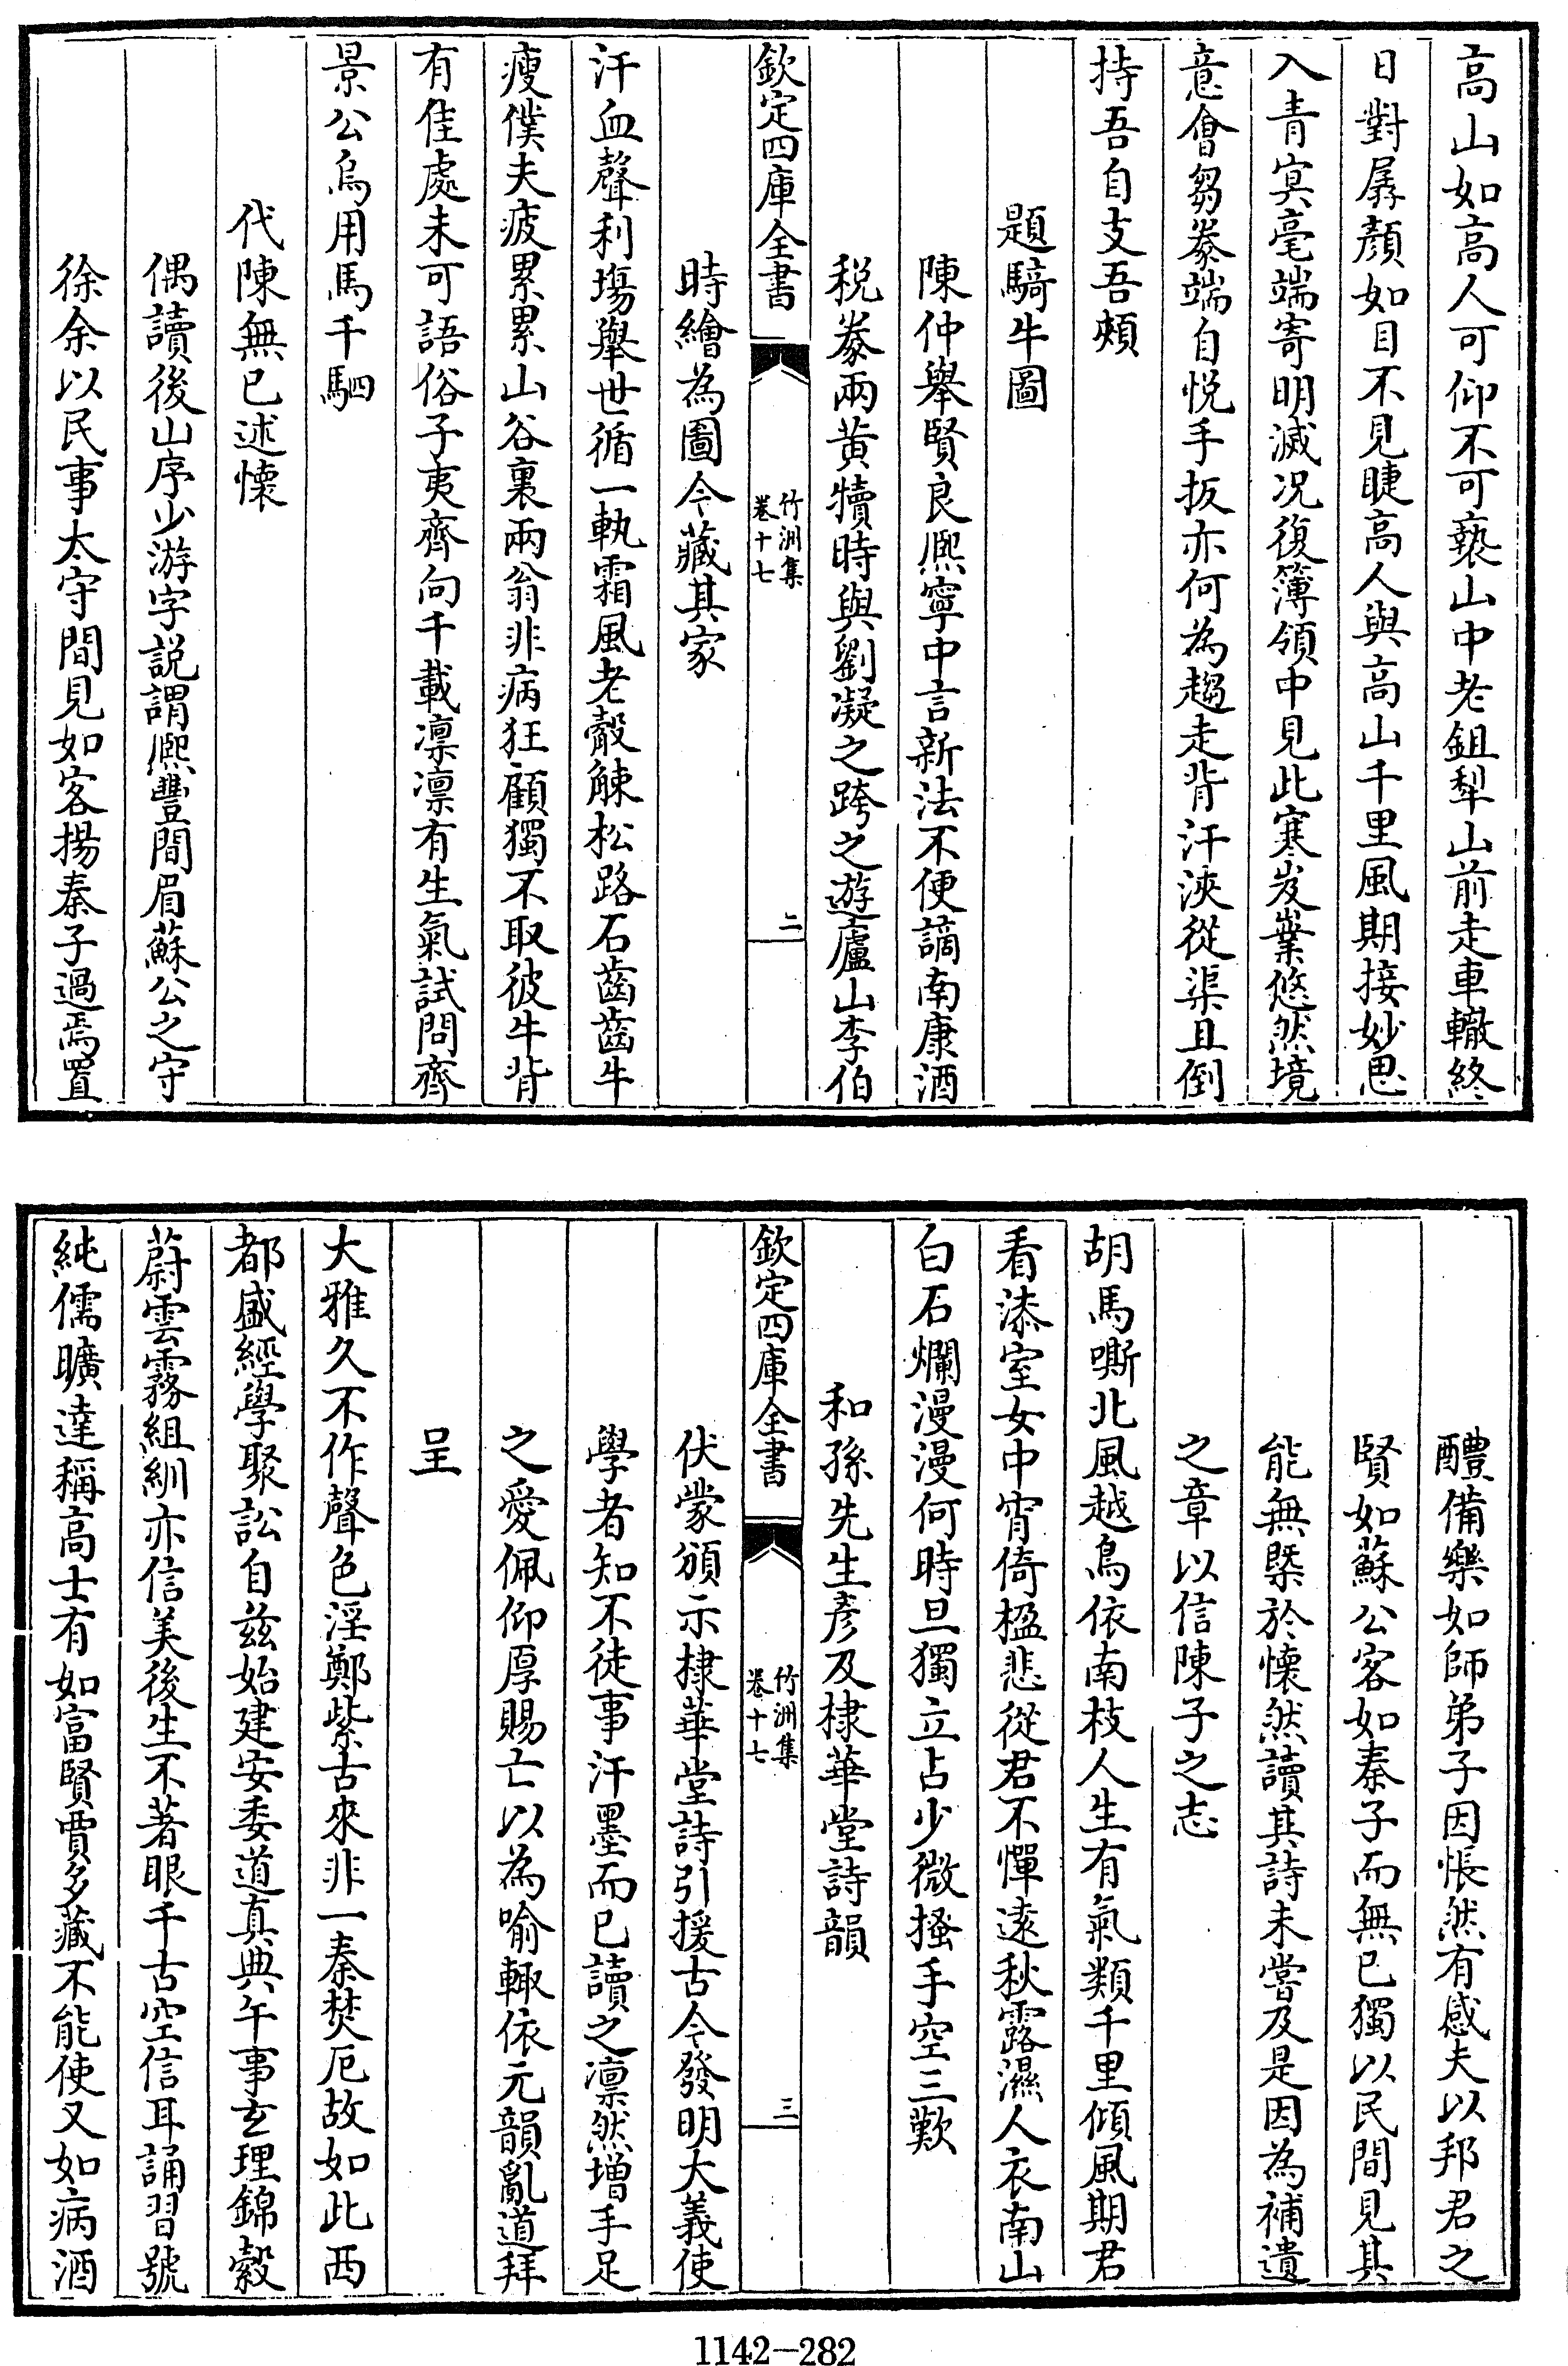 高山如高人可仰不可褻山中老鉏犁山前走車轍終
日對孱顏如目不見睫高人與高山千里風期接妙思
入青冥毫端寄明滅况復簿領中見此寒岌嶪悠然境
意會芻豢端自悦手扳亦何為趨走背汗浹從渠且倒
持吾自支吾頰
題騎牛圖
陳仲舉賢良熈寧中言新法不便謫南康酒
税豢兩黄犢時與劉凝之跨之遊廬山李伯
欽定四庫全書
竹洲集
卷十七
二
時繪為圖今藏其家
汗血聲利塲舉世循一執霜風老觳觫松路石齒齒牛
瘦僕夫疲累累山谷裏兩翁非病狂顧獨不取彼牛背
有佳處未可語俗子夷齊向千載凛凛有生氣試問齊
景公烏用馬千駟
代陳無已述懐
偶讀後山序少游字説謂熈豐間眉蘇公之守
徐余以民事太守間見如客揚秦子過焉置
醴備樂如師弟子因悵然有感夫以邦君之
賢如蘇公客如秦子而無已獨以民間見其
能無槩於懐然讀其詩未嘗及是因為補遺
之章以信陳子之志
胡馬嘶北風越鳥依南枝人生有氣類千里傾風期君
看漆室女中宵倚楹悲從君不憚遠秋露濕人衣南山
白石爛漫漫何時旦獨立占少微搔手空三歎
和孫先生彦及棣華堂詩韻
欽定四庫全書
竹洲集
卷十七
三
伏蒙頒示棣華堂詩引援古今發明大義使
學者知不徒事汗墨而已讀之凛然增手足
之愛佩仰厚賜亡以為喻輙依元韻亂道拜
呈
大雅久不作聲色淫鄭紫古來非一秦焚厄故如此西
都盛經學聚訟自兹始建安委道真典午事玄理錦縠
蔚雲霧組紃亦信美後生不著眼千古空信耳誦習號
純儒曠達稱高士有如富賢賈多藏不能使又如病酒
1142-282